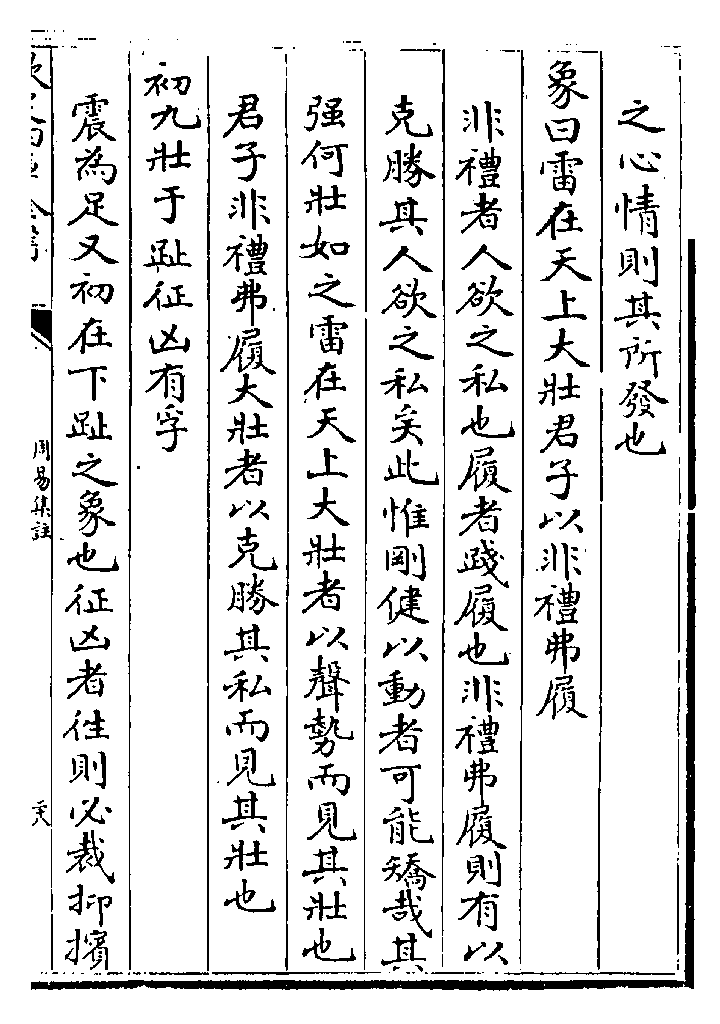 之心情則其所發也
象曰雷在天上大壯君子以非禮弗履
非禮者人欲之私也履者踐履也非禮弗履則有以
克勝其人欲之私矣此惟剛健以動者可能矯哉其
强何壯如之雷在天上大壯者以聲勢而見其壯也
君子非禮弗履大壯者以克勝其私而見其壯也
初九壯于趾征凶有孚
震為足又初在下趾之象也征凶者往則必裁抑擯
周易集註